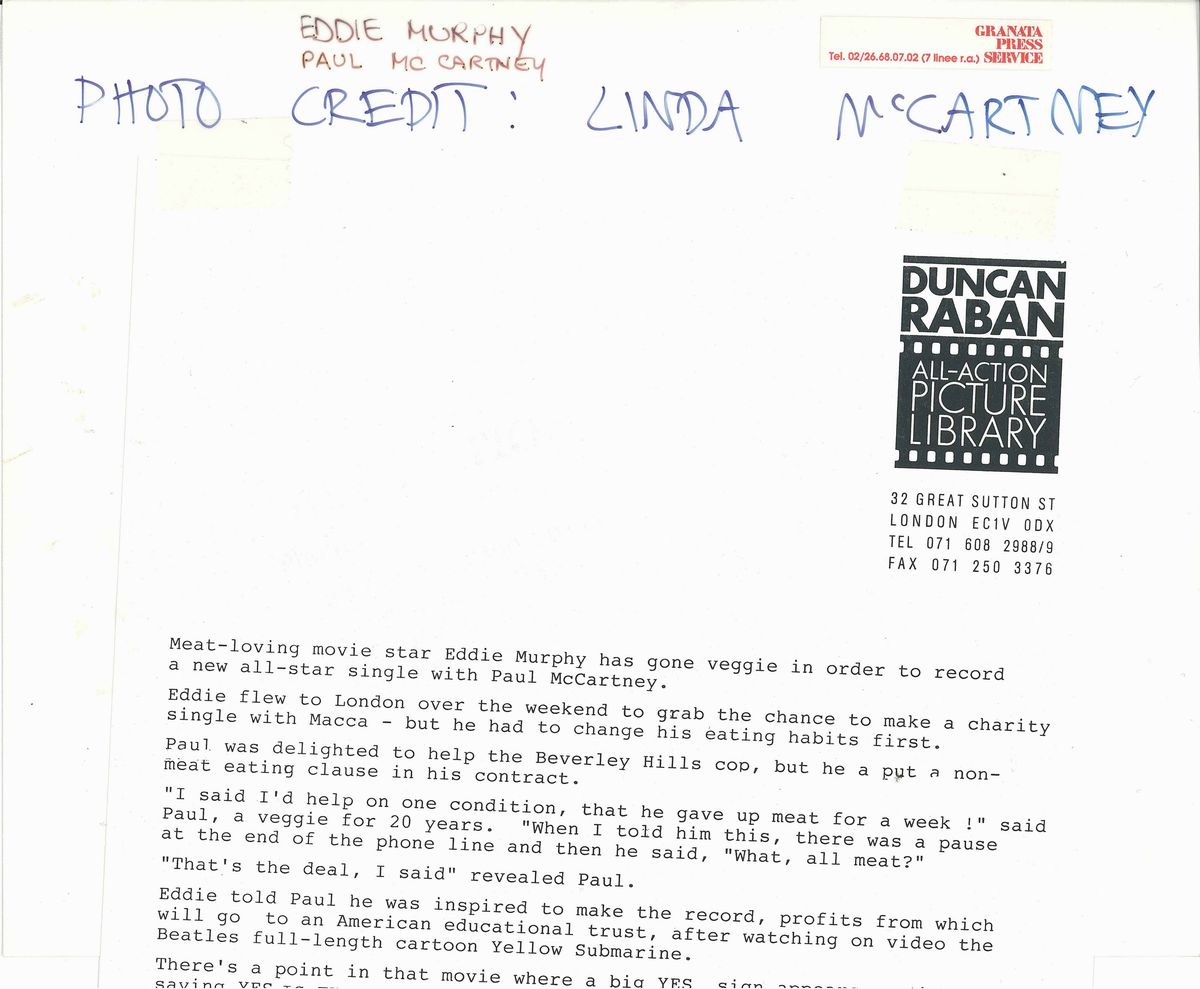 EDDIE MURPHY
PAUL MC CARTNEY
GRANATA
PRESS
Tel. 02/26.68.07.02 (7 linee r.a.) SERVICE
PHOTO CREDIT: LINDA McCARTNEY
DUNCAN
RABAN
ALL-ACTION
PICTURE
LIBRARY
32 GREAT SUTTON ST
LONDON EC1V 0DX
TEL 071 608 2988/9
FAX 071 250 3376
Meat-loving movie star Eddie Murphy has gone veggie in order to record
a new all-star single with Paul McCartney.
Eddie flew to London over the weekend to grab the chance to make a charity
single with Macca - but he had to change his eating habits first.
Paul was delighted to help the Beverley Hills cop, but he a put a non-
meat eating clause in his contract.
"I said I'd help on one condition, that he gave up meat for a week !" said
Paul, a veggie for 20 years. "When I told him this, there was a pause
at the end of the phone line and then he said, "What, all meat?"
"That's the deal, I said" revealed Paul.
Eddie told Paul he was inspired to make the record, profits from which
will go to an American educational trust, after watching on video the
Beatles full-length cartoon Yellow Submarine.
There's a point in that movie where a big YES sign
saying YES IS